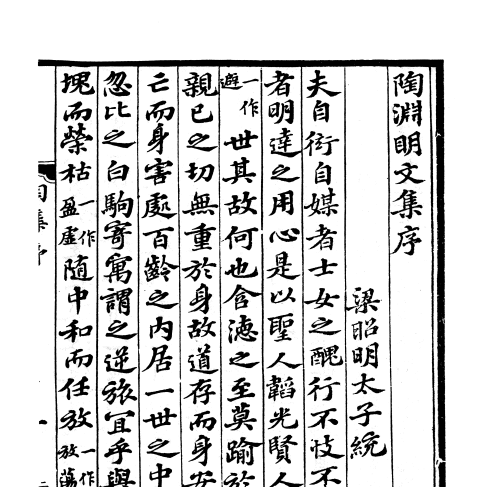 陶淵明文集序
梁昭明太子統
夫自衒自媒者士女之醜行不忮不
者明達之用心是以聖人韜光賢人
遯一作世其故何也含德之至莫踰於
親己之切無重於身故道存而身安
亡而身害處百齡之內居一世之中
忽比之白駒寄寓謂之逆旅宜乎與
塊而榮枯一作盈虛隨中和而任放一作放蕩